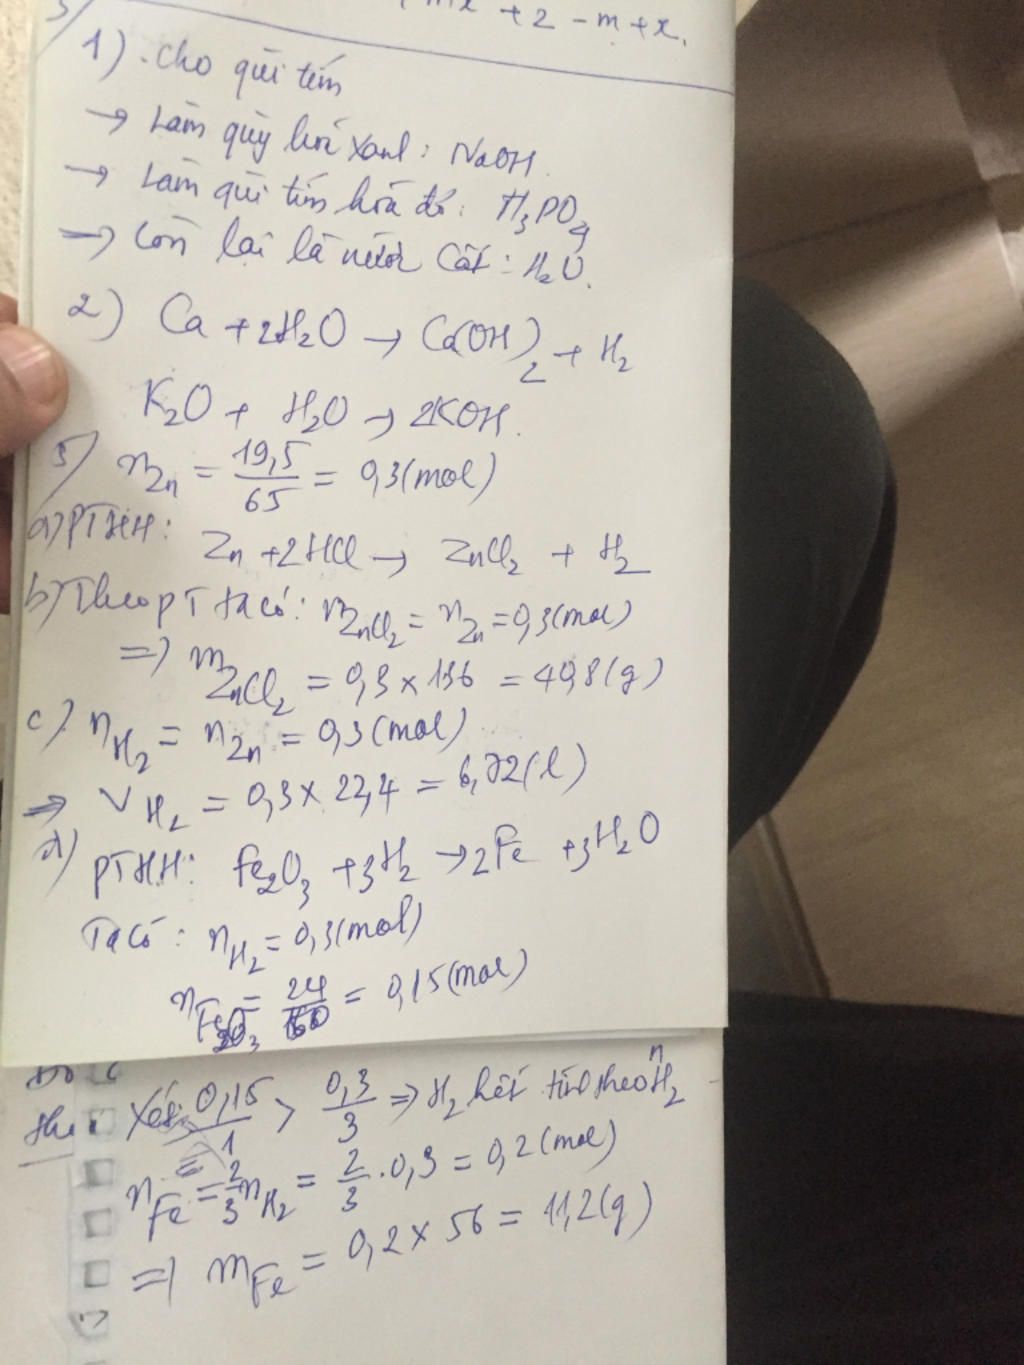 + 2 - m + x.
1) . Cho quì tím
→ Làm quỳ hoá xanh : NaOH.
→ Làm quì tím hóa đỏ : H₃PO₄
→ Còn lại là nước cất : H₂O.
2) Ca + 2H₂O → Ca(OH)₂ + H₂
K₂O + H₂O → 2KOH.
3) nZn = 19,5/65 = 0,3 (mol)
a) PTHH: Zn + 2HCl → ZnCl₂ + H₂
b) Theo PT ta có: nZnCl₂ = nZn = 0,3 (mol)
=> mZnCl₂ = 0,3 × 136 = 40,8 (g)
c) nH₂ = nZn = 0,3 (mol)
=> VH₂ = 0,3 × 22,4 = 6,72 (l)
d) PTHH: Fe₂O₃ + 3H₂ → 2Fe + 3H₂O
Ta có: nH₂ = 0,3 (mol)
nFe₂O₃ = 24/160 = 0,15 (mol)
Xét: 0,15/1 > 0,3/3 => H₂ hết tính theo nH₂
nFe = 2/3 nH₂ = 2/3 . 0,3 = 0,2 (mol)
=> mFe = 0,2 × 56 = 11,2 (g)